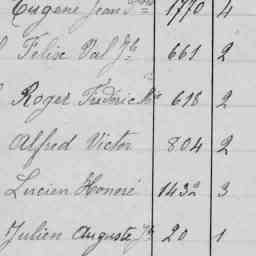 Eugène Jean 1770 4
Felix Val Jh 661 2
Roger Frédéric 618 2
Alfred Victor 804 2
Lucien Honoré 1432 3
Julien Auguste Jh 20 1